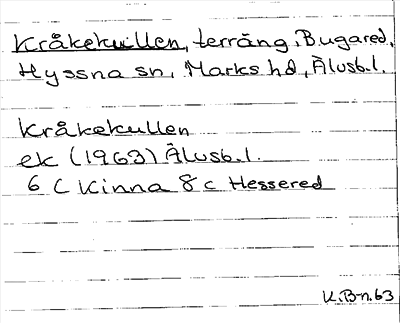 Kråkekullen, terräng, Bugared,
Hyssna sn, Marks hd, Älvsb.l.
Kråkekullen
ek (1963) Älvsb.l.
6 C Kinna 8 c Hessered
K.B-n.63